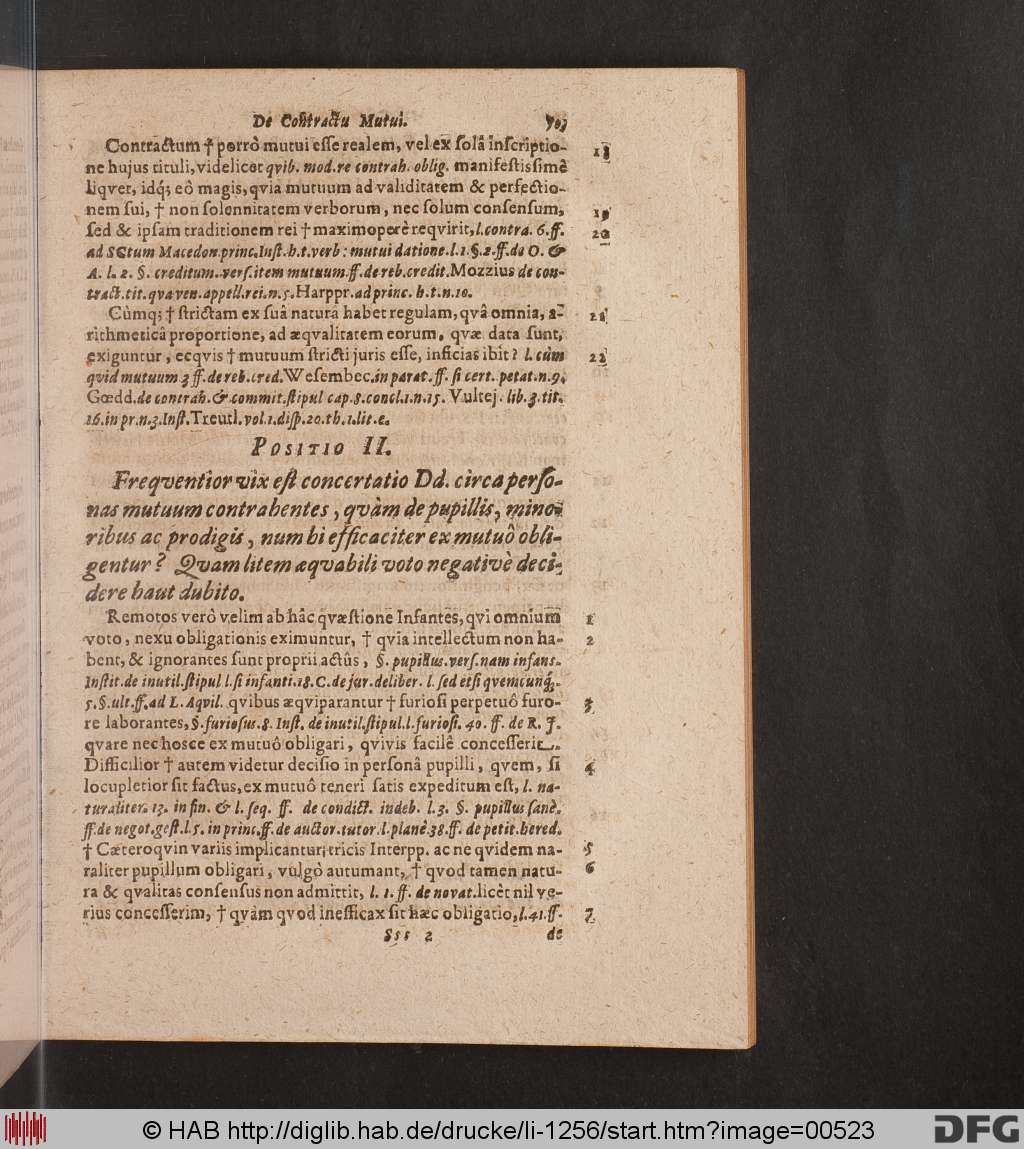 De Contractu Mutui.
Contractum † porrò mutui esse realem, vel ex solâ inscriptio- 18
ne hujus tituli, videlicet qvib. mod. re contrah. oblig. manifestissimè
liqvet, idq; eò magis, qvia mutuum ad validitatem & perfectio-
nem sui, † non solennitatem verborum, nec solum consensum, 19
sed & ipsam traditionem rei † maximoperè reqvirit, l. contra. 6. ff. 20
ad SCtum Macedon. princ. Inst. h. t. verb: mutui datione. l. 1. §. 2. ff. de O. &
A. l. 2. §. creditum. vers. item mutuum. ff. de reb. credit. Mozzius de con-
tract. tit. qva ven. appell. rei. n. 5. Harppr. ad princ. h. t. n. 10.
Cùmq; † strictam ex suâ naturâ habet regulam, qvâ omnia, a- 21
rithmeticâ proportione, ad æqvalitatem eorum, qvæ data sunt,
exiguntur, ecqvis † mutuum stricti juris esse, inficias ibit? l. cùm 22
qvid mutuum 3 ff. de reb. cred. Wesembec. in parat. ff. si cert. petat. n. 9.
Gœdd. de contrah. & commit. stipul cap. 8. concl. 1. n. 15. Vultej. lib. 3. tit.
16. in pr. n. 3. Inst. Treutl. vol. 1. disp. 20. th. 1. lit. c.
POSITIO II.
Freqventior vix est concertatio Dd. circa perso-
nas mutuum contrahentes, qvàm de pupillis, mino-
ribus ac prodigis, num hi efficaciter ex mutuô obli-
gentur? Qvam litem æqvabili voto negativè deci-
dere haut dubito.
Remotos verò velim ab hâc qvæstione Infantes, qvi omnium 1
voto, nexu obligationis eximuntur, † qvia intellectum non ha- 2
bent, & ignorantes sunt proprii actûs, §. pupillus. vers. nam infans.
Instit. de inutil. stipul l. si infanti. 18. C. de jur. deliber. l. sed etsi qvemcunq;.
5. §. ult. ff. ad L. Aqvil. qvibus æqviparantur † furiosi perpetuô furo- 3
re laborantes, §. furiosus. 8. Inst. de inutil. stipul. l. furiosi. 40. ff. de R. J.
qvare nec hosce ex mutuô obligari, qvivis facilè concesserit.
Difficilior † autem videtur decisio in personâ pupilli, qvem, si 4
locupletior sit factus, ex mutuô teneri satis expeditum est, l. na-
turaliter. 13. in fin. & l. seq. ff. de condict. indeb. l. 3. §. pupillus sanè.
ff. de negot. gest. l. 5. in princ. ff. de auctor. tutor. l. planè 38. ff. de petit. hered.
† Cæteroqvin variis implicantur tricis Interpp. ac ne qvidem na- 5
raliter pupillum obligari, vulgò autumant, † qvod tamen natu- 6
ra & qvalitas consensus non admittit, l. 1. ff. de novat. licèt nil ve-
rius concesserim, † qvàm qvod inefficax sit hæc obligatio, l. 41. ff. 7
Sss 2 de
© HAB http://diglib.hab.de/drucke/li-1256/start.htm?image=00523
DFG